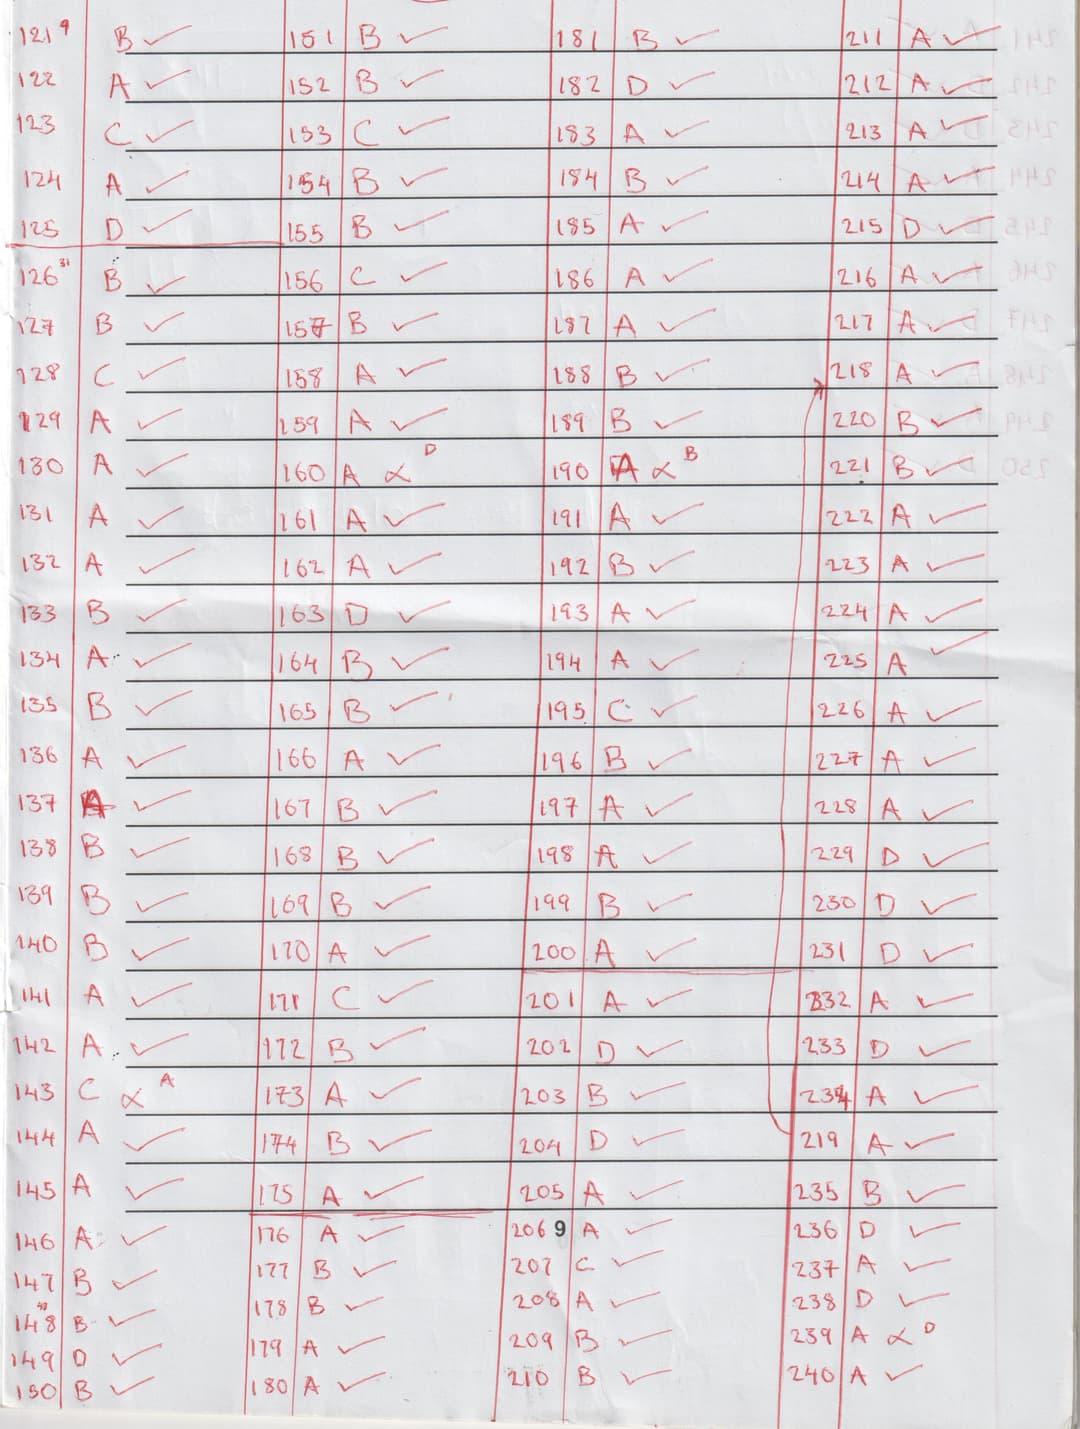 121 9 B ✓ 151 B ✓ 181 B ✓ 211 A ✓
122 A ✓ 152 B ✓ 182 D ✓ 212 A ✓
123 C ✓ 153 C ✓ 183 A ✓ 213 A ✓
124 A ✓ 154 B ✓ 184 B ✓ 214 A ✓
125 D ✓ 155 B ✓ 185 A ✓ 215 D ✓
126 31 B ✓ 156 C ✓ 186 A ✓ 216 A ✓
127 B ✓ 157 B ✓ 187 A ✓ 217 A ✓
128 C ✓ 158 A ✓ 188 B ✓ 218 A ✓
129 A ✓ 159 A ✓ 189 B ✓ 220 B ✓
130 A ✓ 160 A ∝ D 190 A ∝ B 221 B ✓
131 A ✓ 161 A ✓ 191 A ✓ 222 A ✓
132 A ✓ 162 A ✓ 192 B ✓ 223 A ✓
133 B ✓ 163 D ✓ 193 A ✓ 224 A ✓
134 A ✓ 164 B ✓ 194 A ✓ 225 A ✓
135 B ✓ 165 B ✓ 195 C ✓ 226 A ✓
136 A ✓ 166 A ✓ 196 B ✓ 227 A ✓
137 A ✓ 167 B ✓ 197 A ✓ 228 A ✓
138 B ✓ 168 B ✓ 198 A ✓ 229 D ✓
139 B ✓ 169 B ✓ 199 B ✓ 230 D ✓
140 B ✓ 170 A ✓ 200 A ✓ 231 D ✓
141 A ✓ 171 C ✓ 201 A ✓ 232 A ✓
142 A ✓ 172 B ✓ 202 D ✓ 233 D ✓
143 C ∝ A 173 A ✓ 203 B ✓ 234 A ✓
144 A ✓ 174 B ✓ 204 D ✓ 219 A ✓
145 A ✓ 175 A ✓ 205 A ✓ 235 B ✓
146 A ✓ 176 A ✓ 206 9 A ✓ 236 D ✓
147 B ✓ 177 B ✓ 207 C ✓ 237 A ✓
148 B ✓ 178 B ✓ 208 A ✓ 238 D ✓
149 D ✓ 179 A ✓ 209 B ✓ 239 A ∝ D
150 B ✓ 180 A ✓ 210 B ✓ 240 A ✓